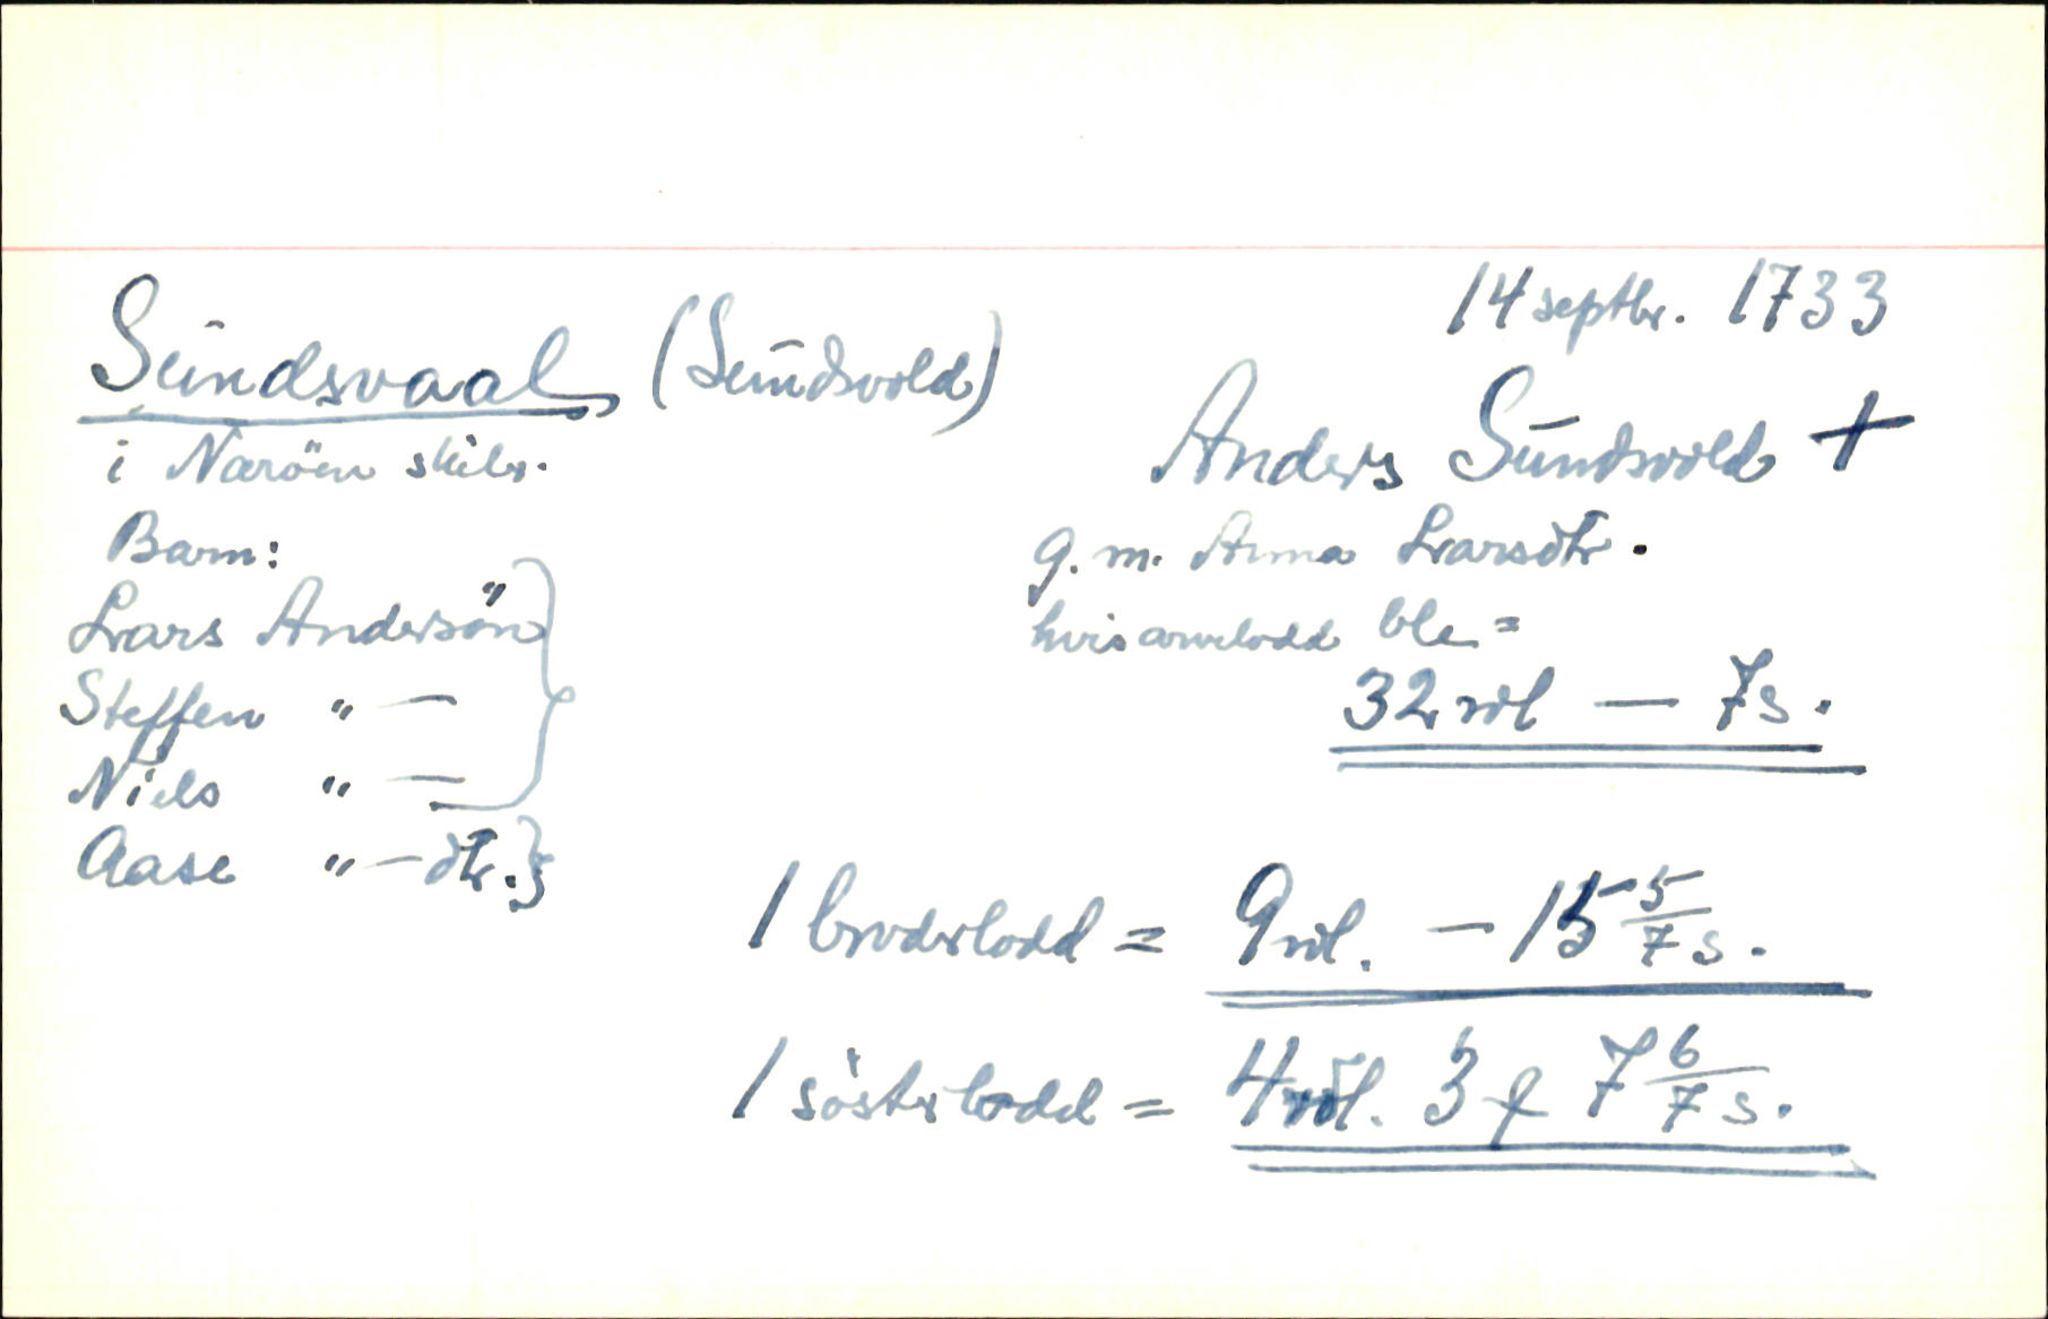 14 septbr. 1733
Sündsvaal (Sündsvold)
i Naröen skibr.
Anders Sündsvold +
g. m. Anna Larsdtr.
hvis arvelodd ble =
32 rdl — 7 s.
Barn:
Lars Andersön
Steffen " —
Niels " —
Aase " — dtr.
1 broderlodd = 9 rdl. — 15 5/7 s.
1 sösterlodd = 4 rdl. 3 ƒ 7 6/7 s.